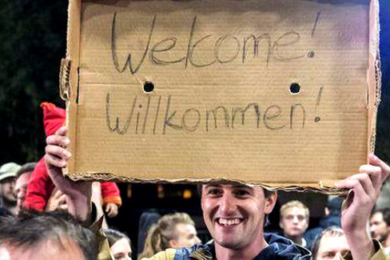 Welcome!
Willkommen!